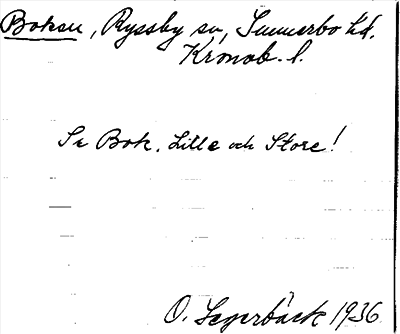 Boksu, Ryssby sn, Sunnerbo hd.
Kronob. l.
Se Bok, Lille och Store!
O. Segerbäck 1936